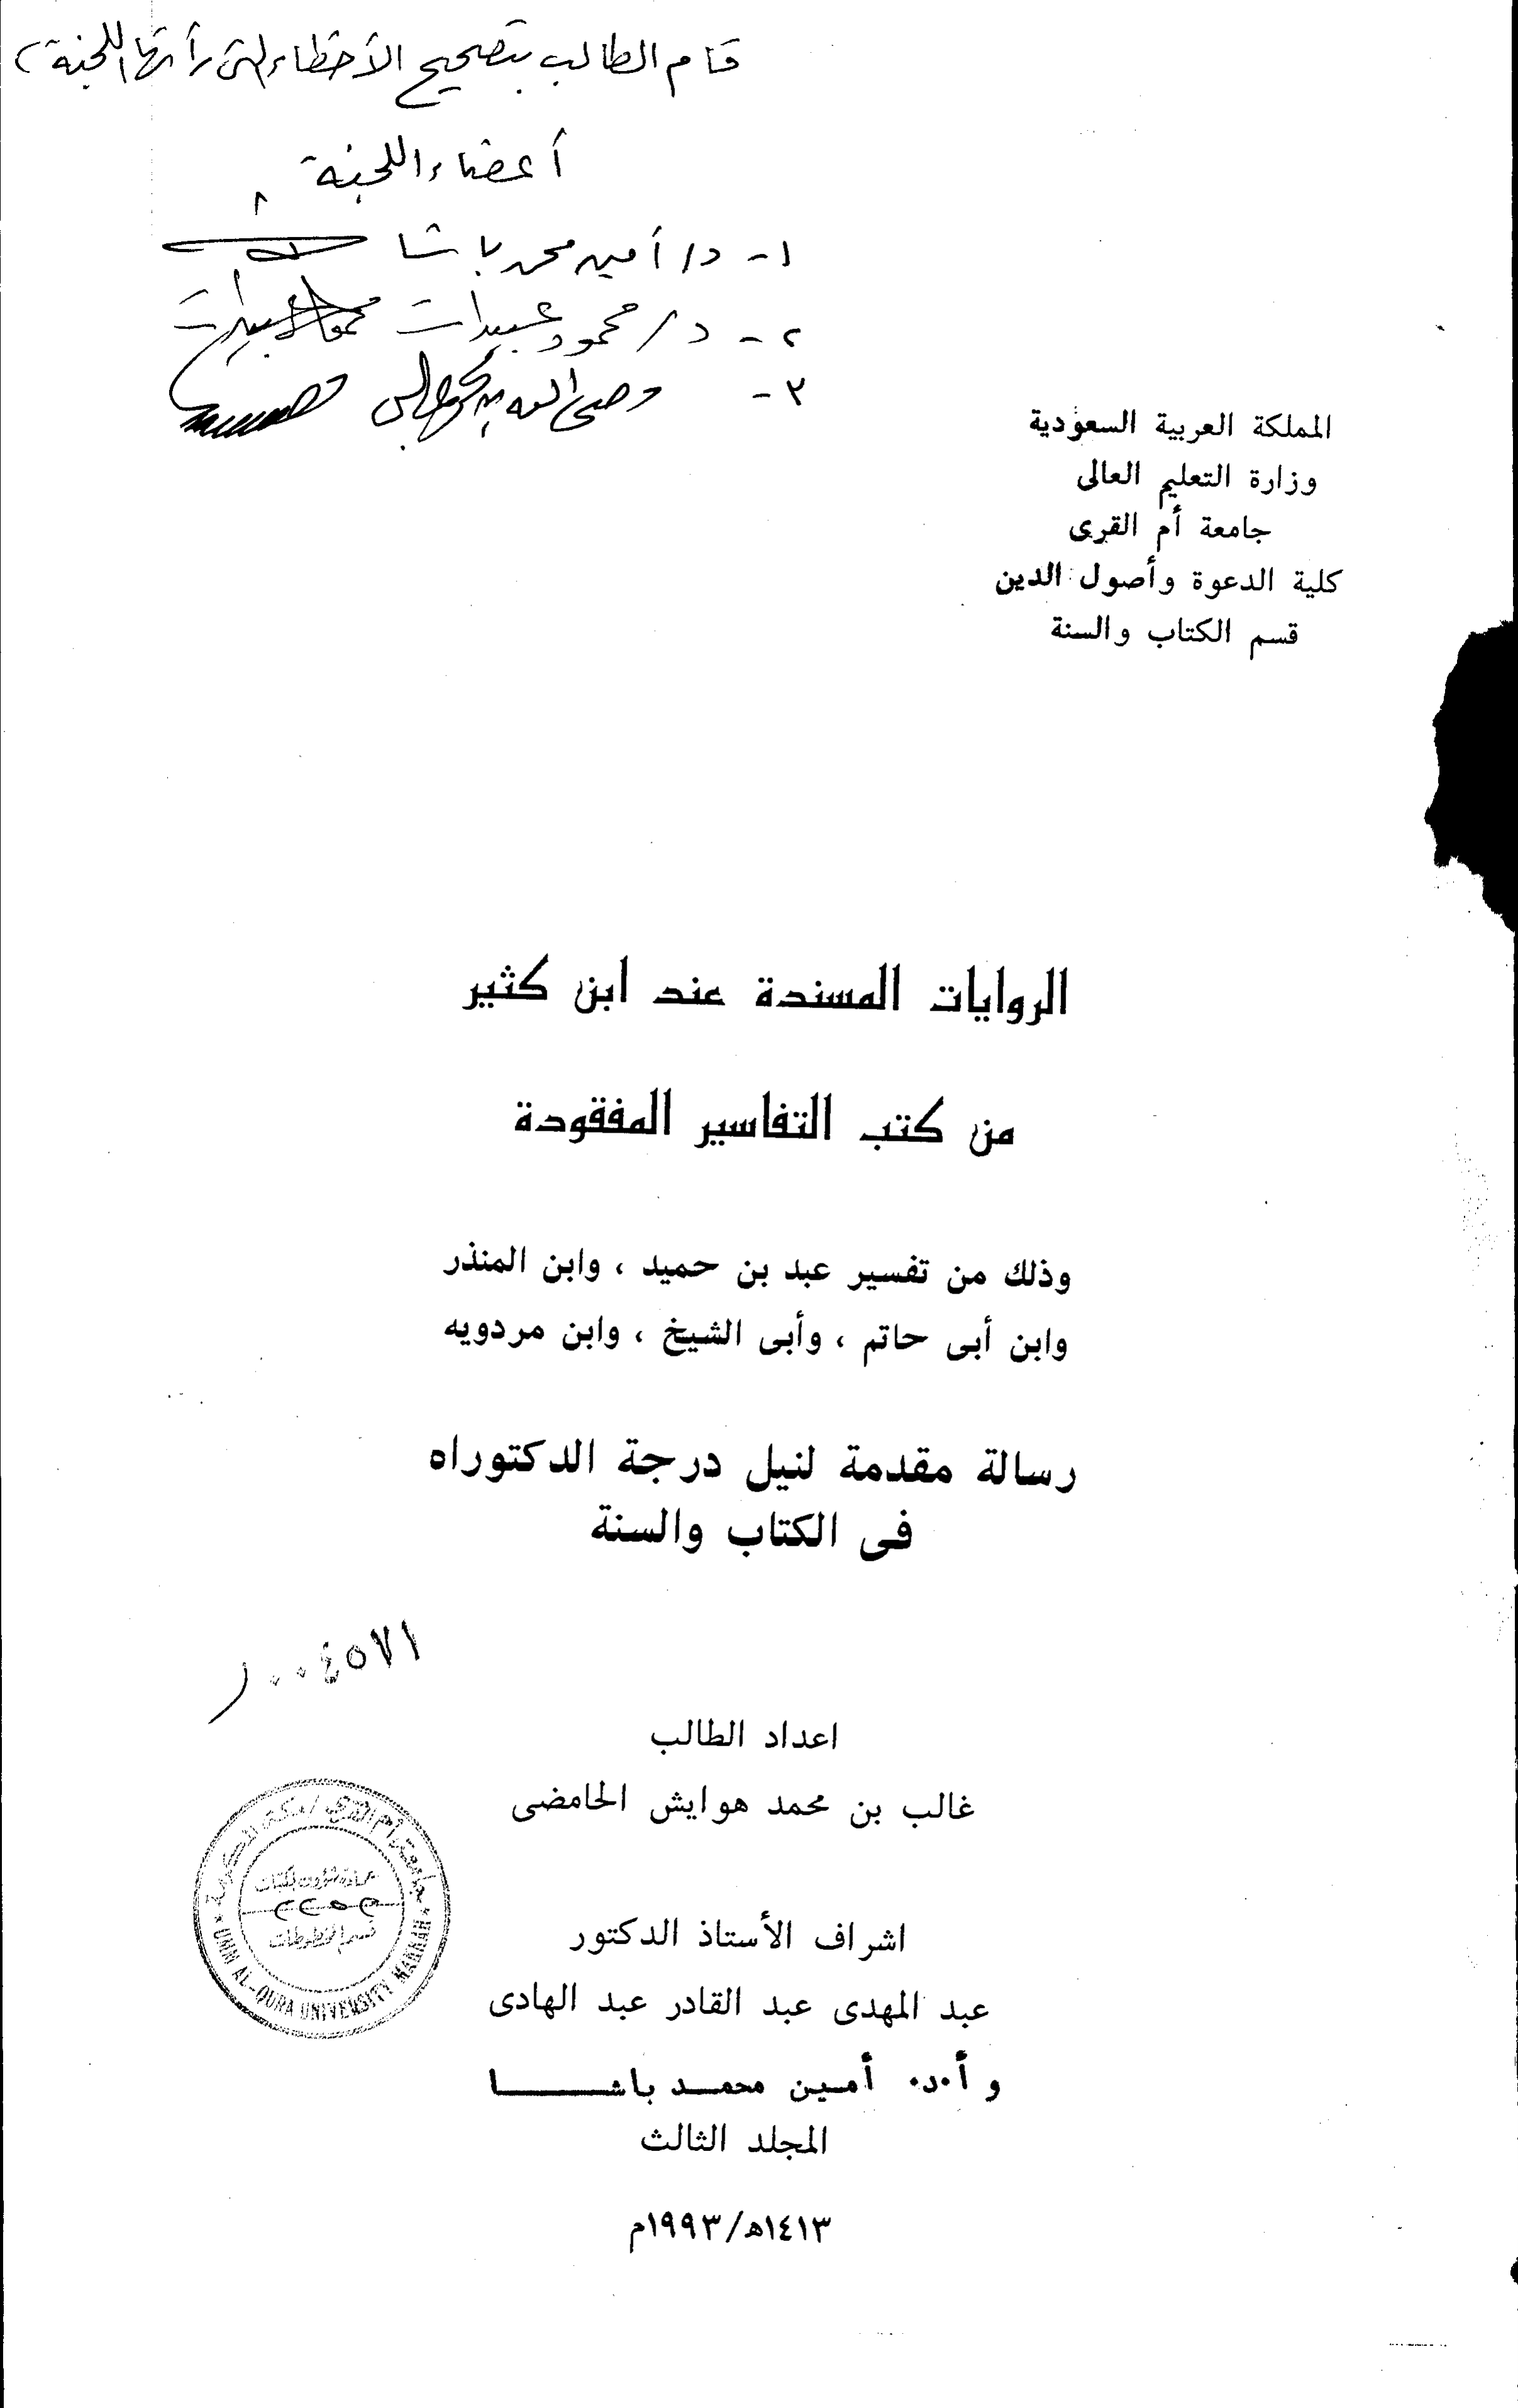 قام الطالب بتصحيح الأخطاء التي رأتها اللجنة
أعضاء اللجنة
١- د/ أمين محمد باشا
٢- د/ محمود عبيدات
٣- وصي الله بن محمد عباس
المملكة العربية السعودية
وزارة التعليم العالى
جامعة أم القرى
كلية الدعوة وأصول الدين
قسم الكتاب والسنة
الروايات المسندة عند ابن كثير
من كتب التفاسير المفقودة
وذلك من تفسير عبد بن حميد ، وابن المنذر
وابن أبى حاتم ، وأبى الشيخ ، وابن مردويه
رسالة مقدمة لنيل درجة الدكتوراه
فى الكتاب والسنة
١٧٥٤٠٠
اعداد الطالب
غالب بن محمد هوايش الحامضى
جامعة أم القرى بمكة المكرمة
عمادة شؤون المكتبات
قسم المخطوطات
UMM AL-QURA UNIVERSITY MAKKAH
اشراف الأستاذ الدكتور
عبد المهدى عبد القادر عبد الهادى
و أ.د. أمين محمد باشا
المجلد الثالث
١٤١٣ه/١٩٩٣م